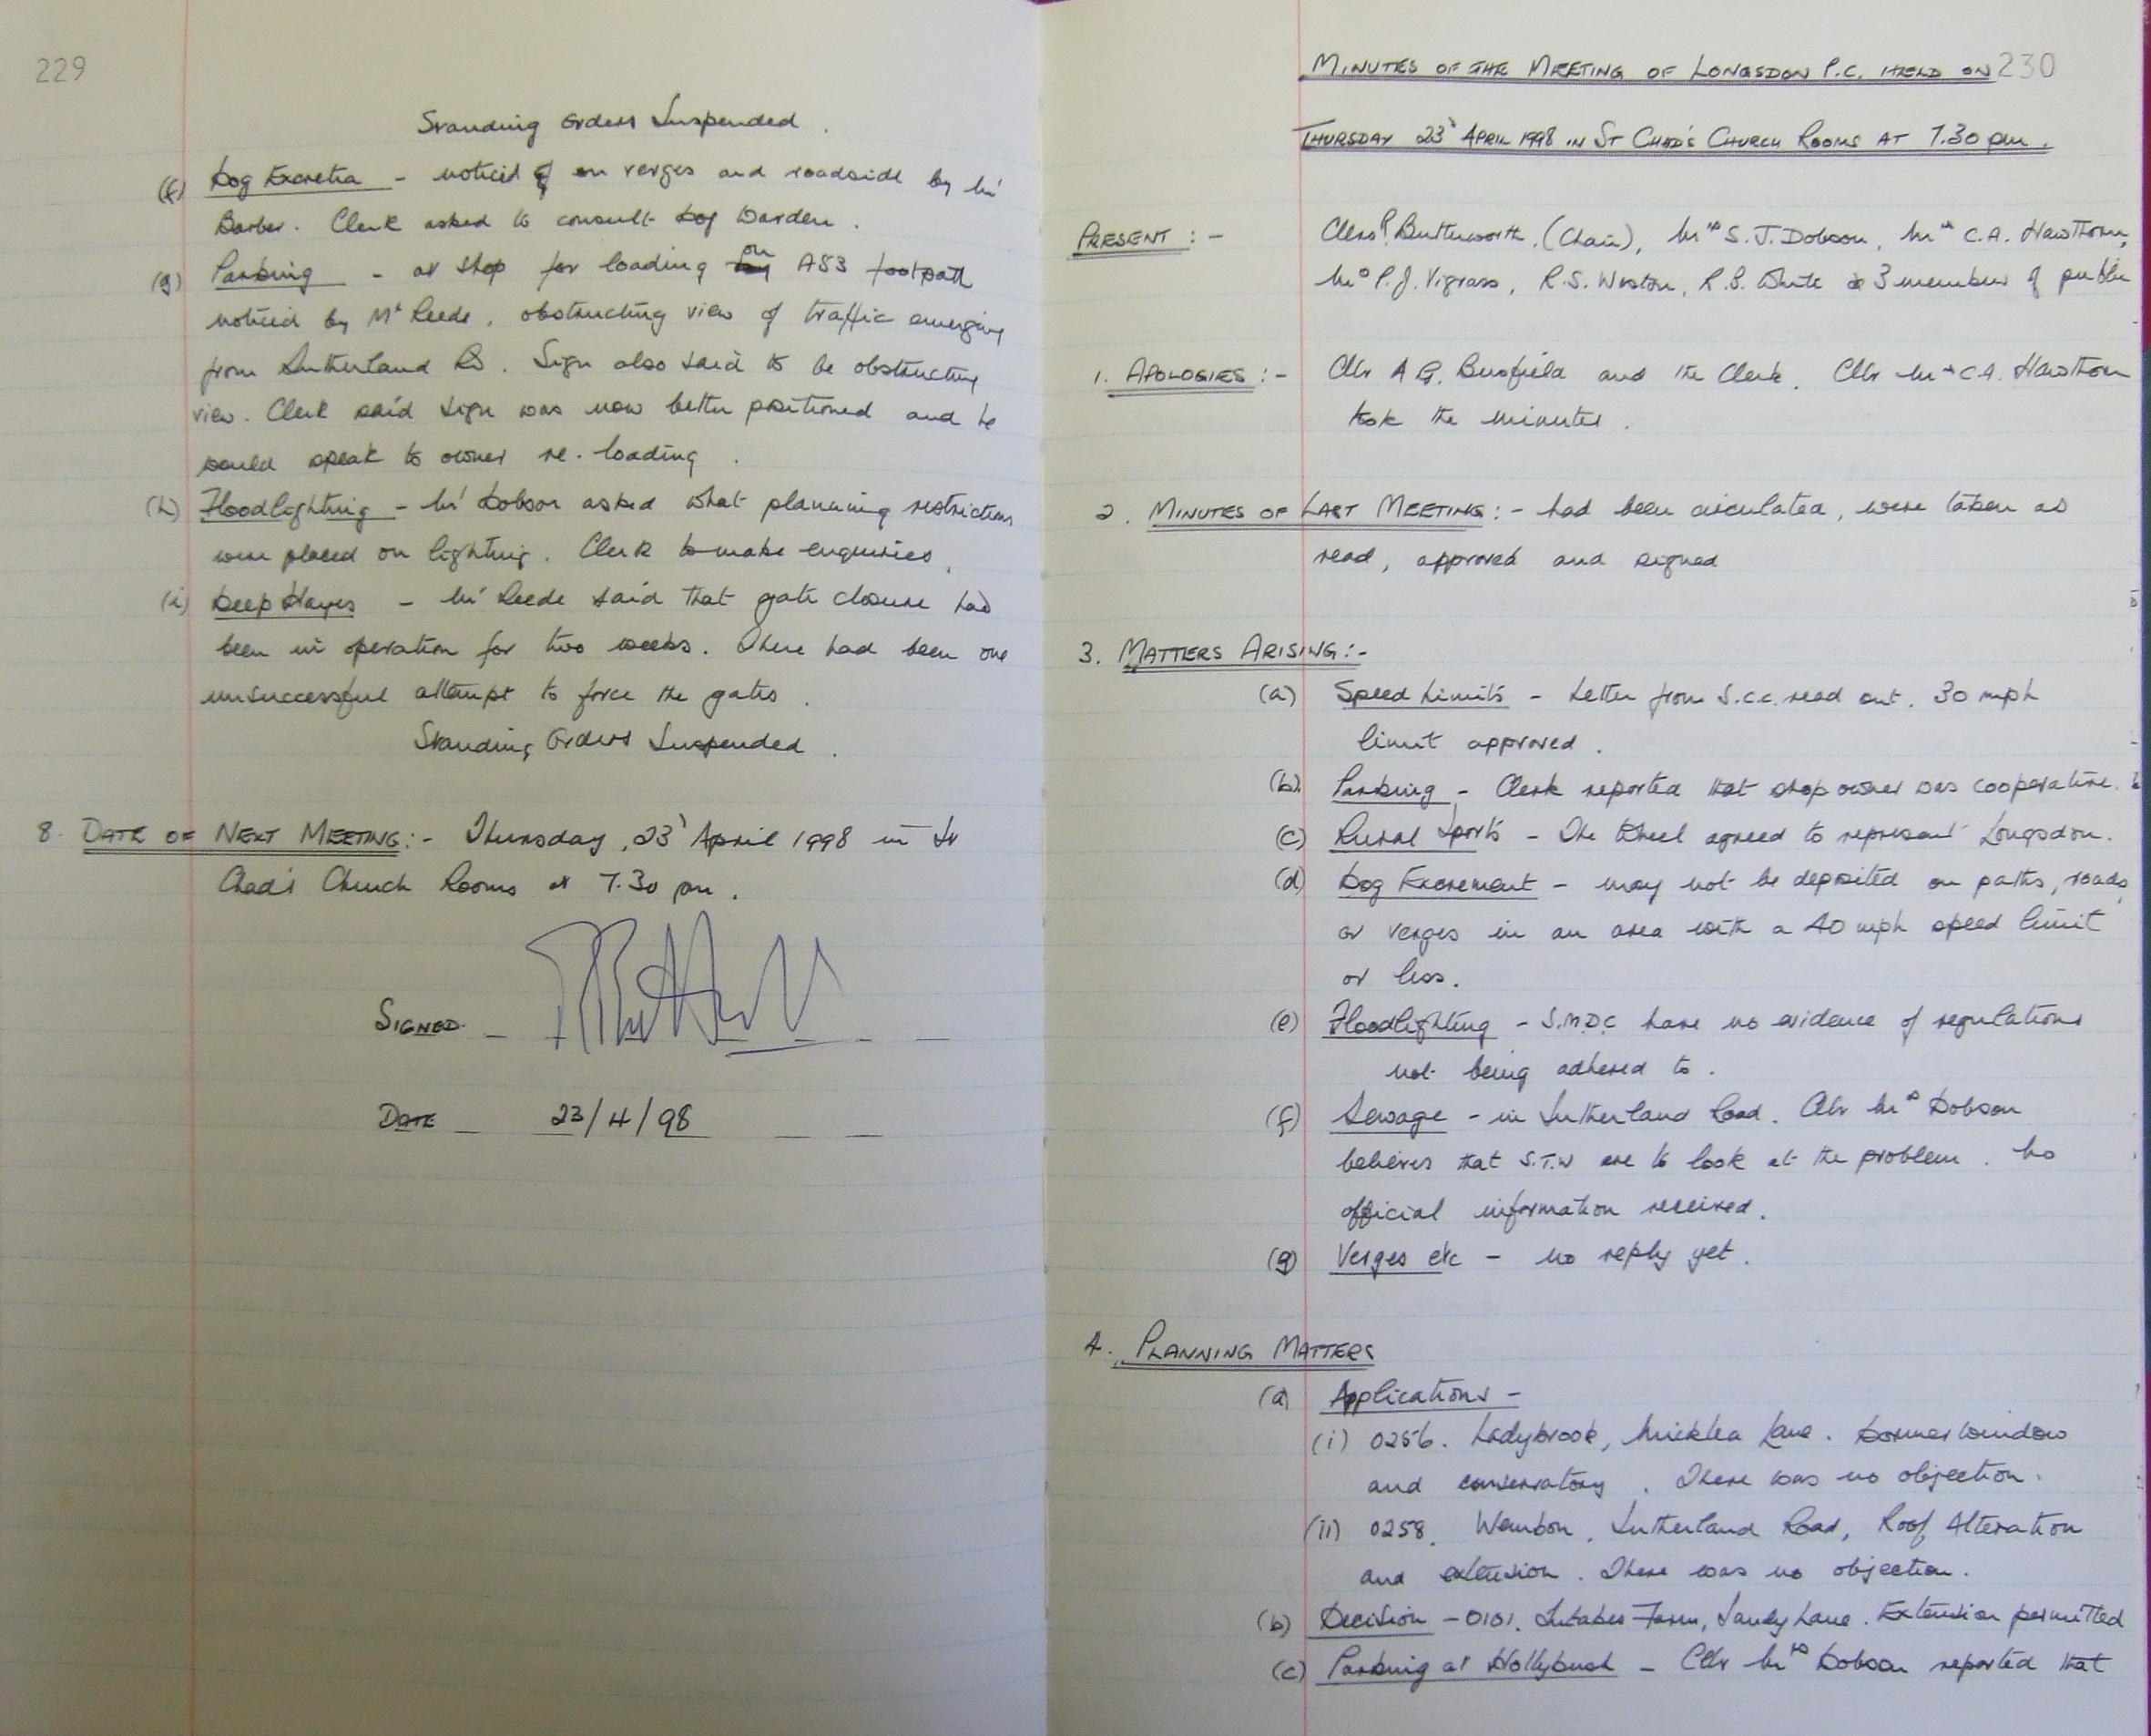 229
Standing Orders Suspended.
(f) Dog Excretia - noticed on verges and roadside by Mr
Barber. Clerk asked to consult Dog Warden.
(g) Parking - at shop for loading on A53 footpath
noticed by Mr Reede, obstructing view of traffic emerging
from Sutherland Rd. Sign also said to be obstructing
view. Clerk said sign was now better positioned and he
would speak to owner re. loading.
(h) Floodlighting - Mr Dobson asked what planning restrictions
were placed on lighting. Clerk to make enquiries.
(i) Deep Hayes - Mr Reede said that gate closure had
been in operation for two weeks. There had been one
unsuccessful attempt to force the gates.
Standing Orders Suspended.
8. DATE OF NEXT MEETING:- Thursday, 23rd April 1998 in St
Chad's Church Rooms at 7.30 pm.
SIGNED
DATE 23/4/98
230
MINUTES OF THE MEETING OF LONGSDON P.C. HELD ON
THURSDAY 23rd APRIL 1998 IN ST CHAD'S CHURCH ROOMS AT 7.30 pm.
PRESENT:- Cllrs P. Butterworth (Chair), Mrs S.J. Dobson, Mrs C.A. Hawthorn,
P.J. Vigrass, R.S. Weston, R.B. White & 3 members of public
1. APOLOGIES:- Cllr A.G. Busfield and the Clerk. Cllr Mrs C.A. Hawthorn
took the minutes.
2. MINUTES OF LAST MEETING:- had been circulated, were taken as
read, approved and signed
3. MATTERS ARISING:-
(a) Speed Limits - Letter from S.C.C. read out. 30 mph
limit approved.
(b) Parking - Clerk reported that shop owner was cooperative.
(c) Rural Sports - The Wheel agreed to represent Longsdon.
(d) Dog Excrement - may not be deposited on paths, roads,
or verges in an area with a 40 mph speed limit
or less.
(e) Floodlighting - S.M.D.C have no evidence of regulations
not being adhered to.
(f) Sewage - in Sutherland Road. Cllr Mrs Dobson
believes that S.T.W are to look at the problem. No
official information received.
(g) Verges etc - no reply yet.
4. PLANNING MATTERS
(a) Applications -
(i) 0256. Ladybrook, Micklea Lane. Dormer window
and conservatory. There was no objection.
(ii) 0258. Sutherland Road, Roof Alteration
and extension. There was no objection.
(b) Decision - 0101. Intakes Farm, Sandy Lane. Extension permitted
(c) Parking at Hollybush - Cllr Mrs Dobson reported that